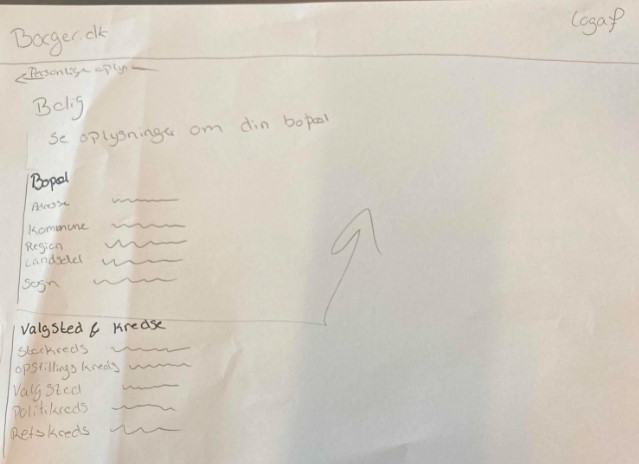 Borger.dk
Log af
← Personlige oplys
Bolig
Se oplysninger om din bopæl
Bopæl
Adresse
Kommune
Region
Landsdel
Sogn
Valgsted & kredse
Storkreds
opstillings kreds
Valg sted
Politikreds
Retskreds